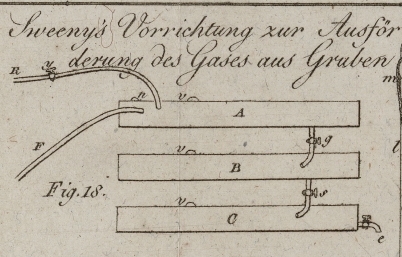 Sweeny's Vorrichtung zur Ausför
derung des Gases aus Gruben
R y n v A m
F g l
v B
Fig. 18. s
v C
e